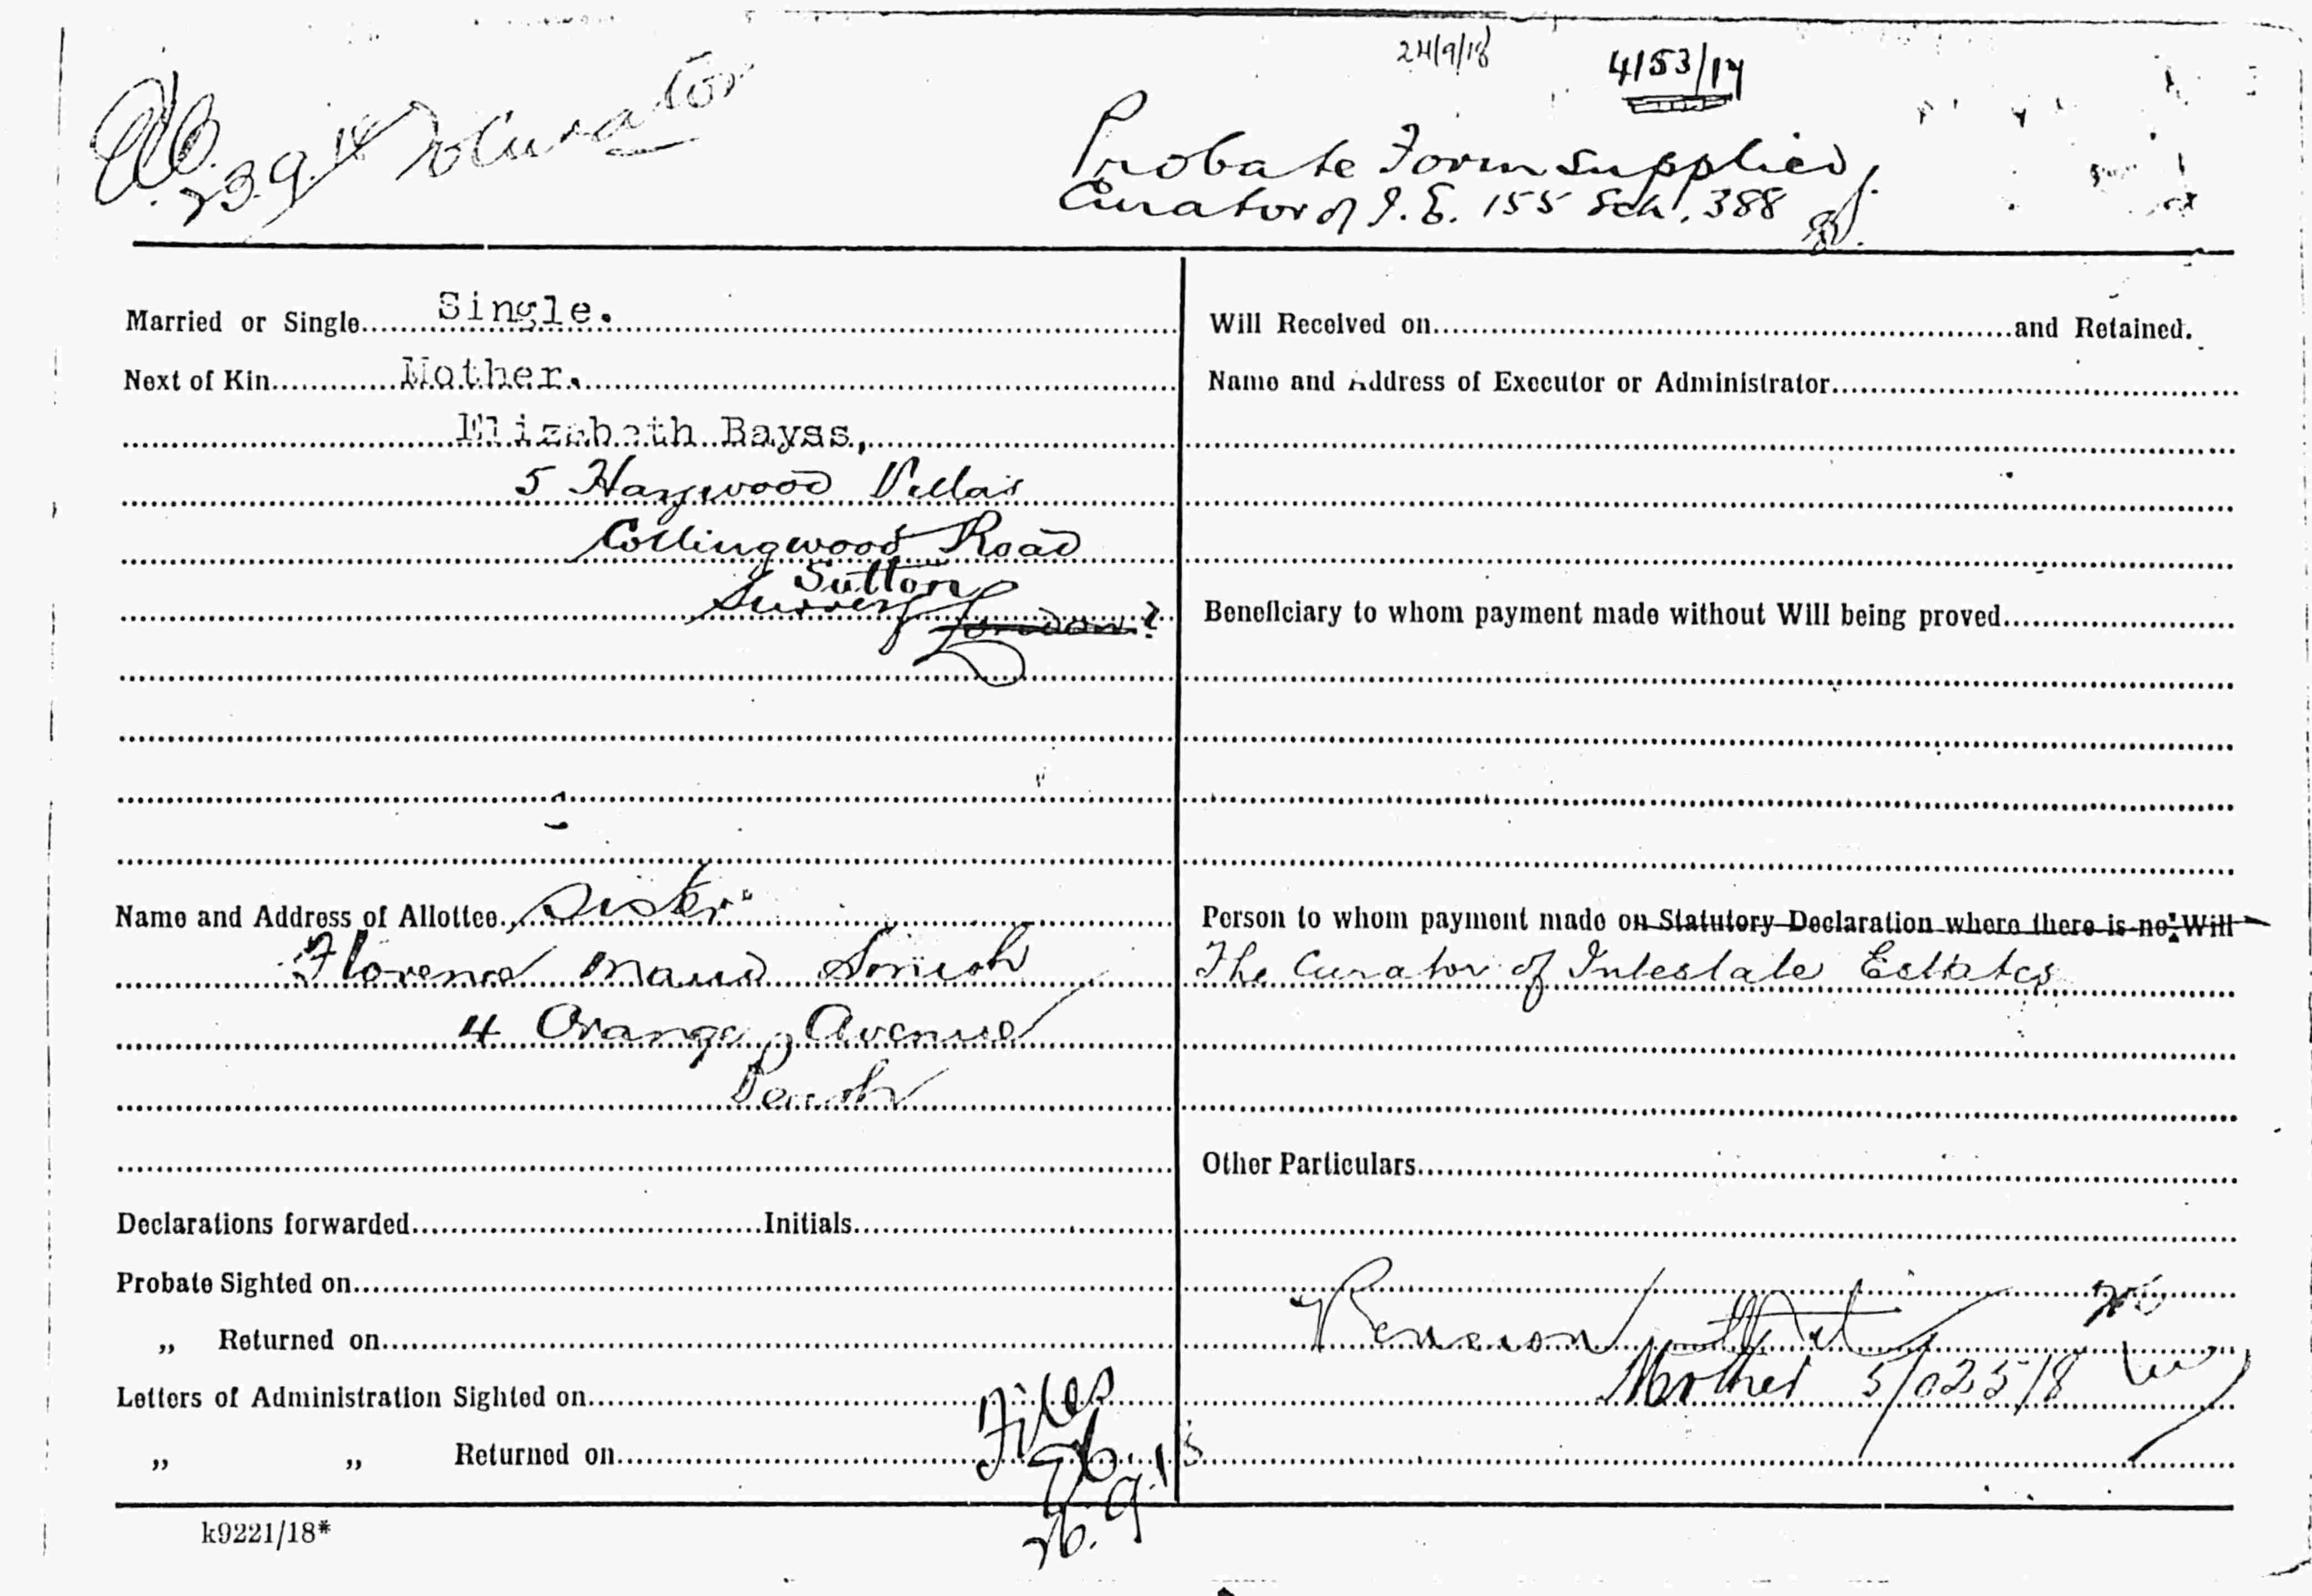 24/9/18
4153/17
23.9.18 to Curator
Probate Form supplied
Curator of I.E. 155 Sch. 388
Married or Single Single.
Next of Kin Mother.
Elizabeth Bayss,
5 Haywood Villas
Collingwood Road
Sutton
Surrey London ?
Name and Address of Allottee Sister
Florence Maud Smith
4 Orange Avenue
Perth
Declarations forwarded Initials
Probate Sighted on
„ Returned on
Letters of Administration Sighted on
„ „ Returned on
Files
26.9.18
Will Received on and Retained.
Name and Address of Executor or Administrator
Beneficiary to whom payment made without Will being proved
Person to whom payment made on Statutory Declaration where there is no Will
The Curator of Intestate Estates
Other Particulars
Mother
k9221/18*